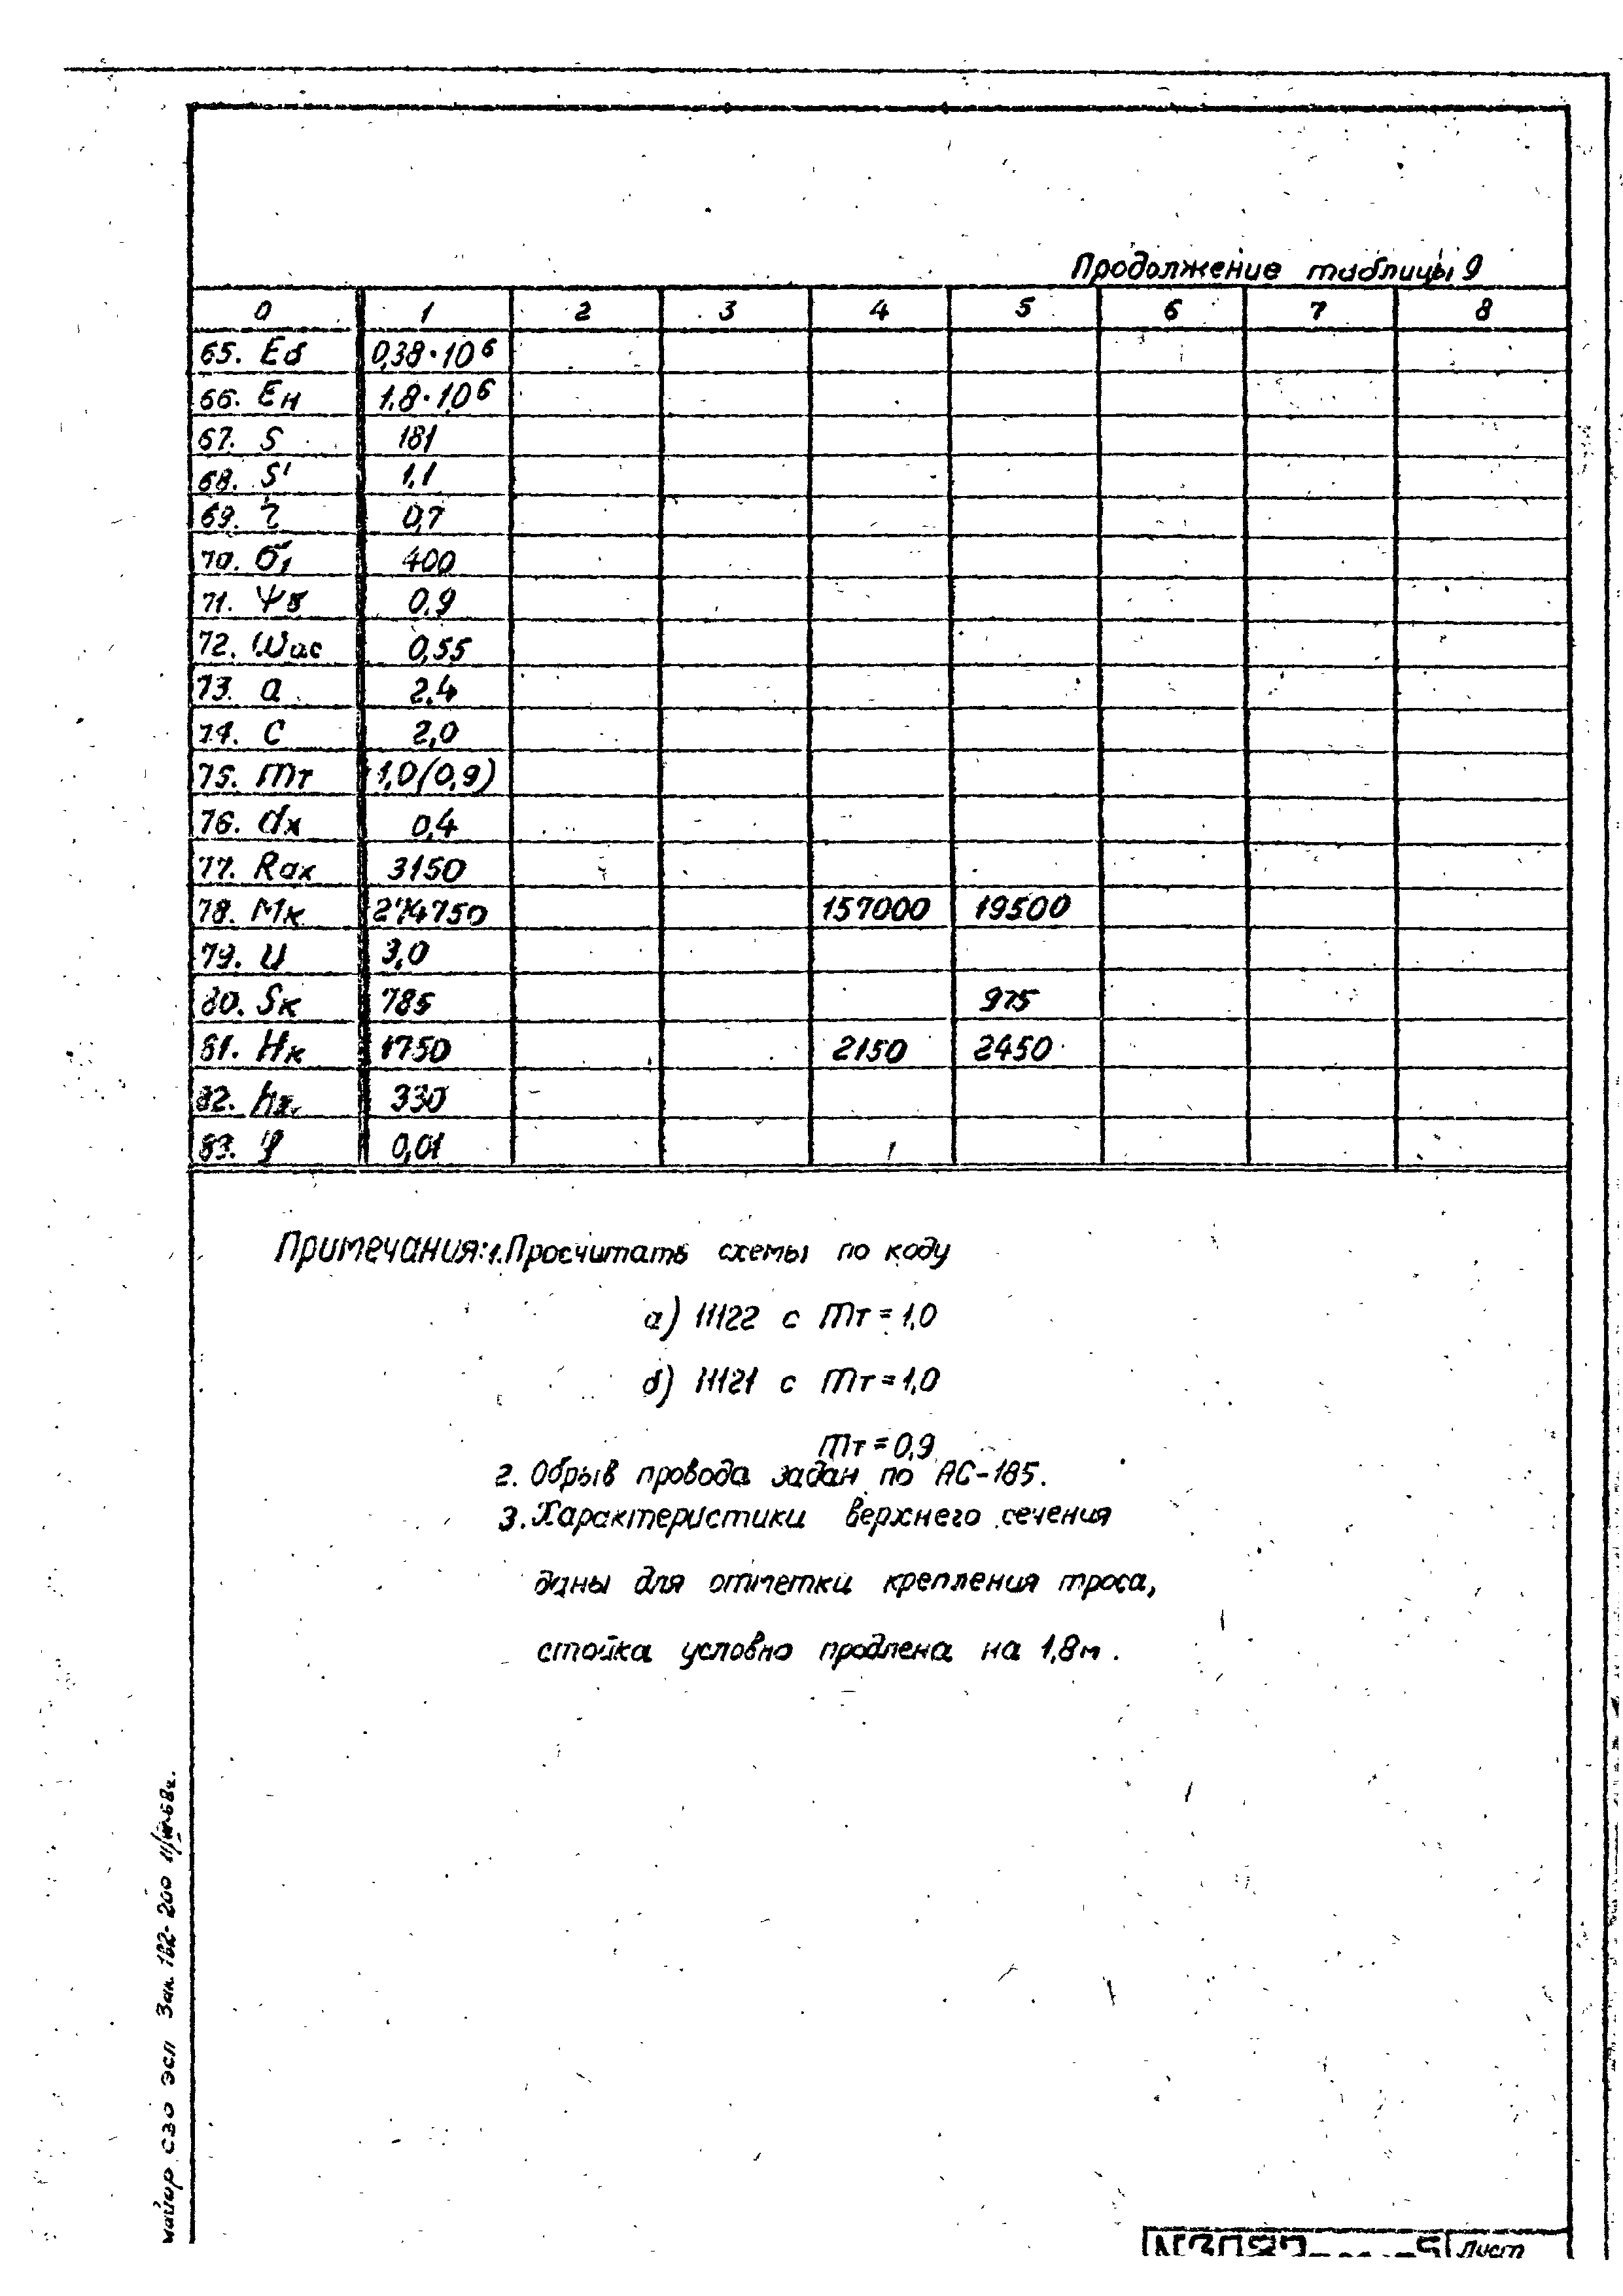 Продолжение таблицы 9
0 1 2 3 4 5 6 7 8
65. Eб 0,38·10⁶
66. Eн 1,8·10⁶
67. S 181
68. S' 1,1
69. τ 0,7
70. σ₁ 400
71. Ψб 0,9
72. Wас 0,55
73. a 2,4
74. C 2,0
75. mт 1,0(0,9)
76. dх 0,4
77. Rак 3150
78. Mк 274750 157000 19500
79. U 3,0
80. Sк 785 975
81. Hк 1750 2150 2450
82. 330
83. φ 0,01
Примечания: 1. Просчитать схемы по коду
а) 11122 с mт = 1,0
б) 11121 с mт = 1,0
mт = 0,9
2. Обрыв провода задан по АС-185.
3. Характеристики верхнего сечения
даны для отметки крепления троса,
стойка условно продлена на 1,8м.
СЗО ЭСП Зак. 182-200
Лист